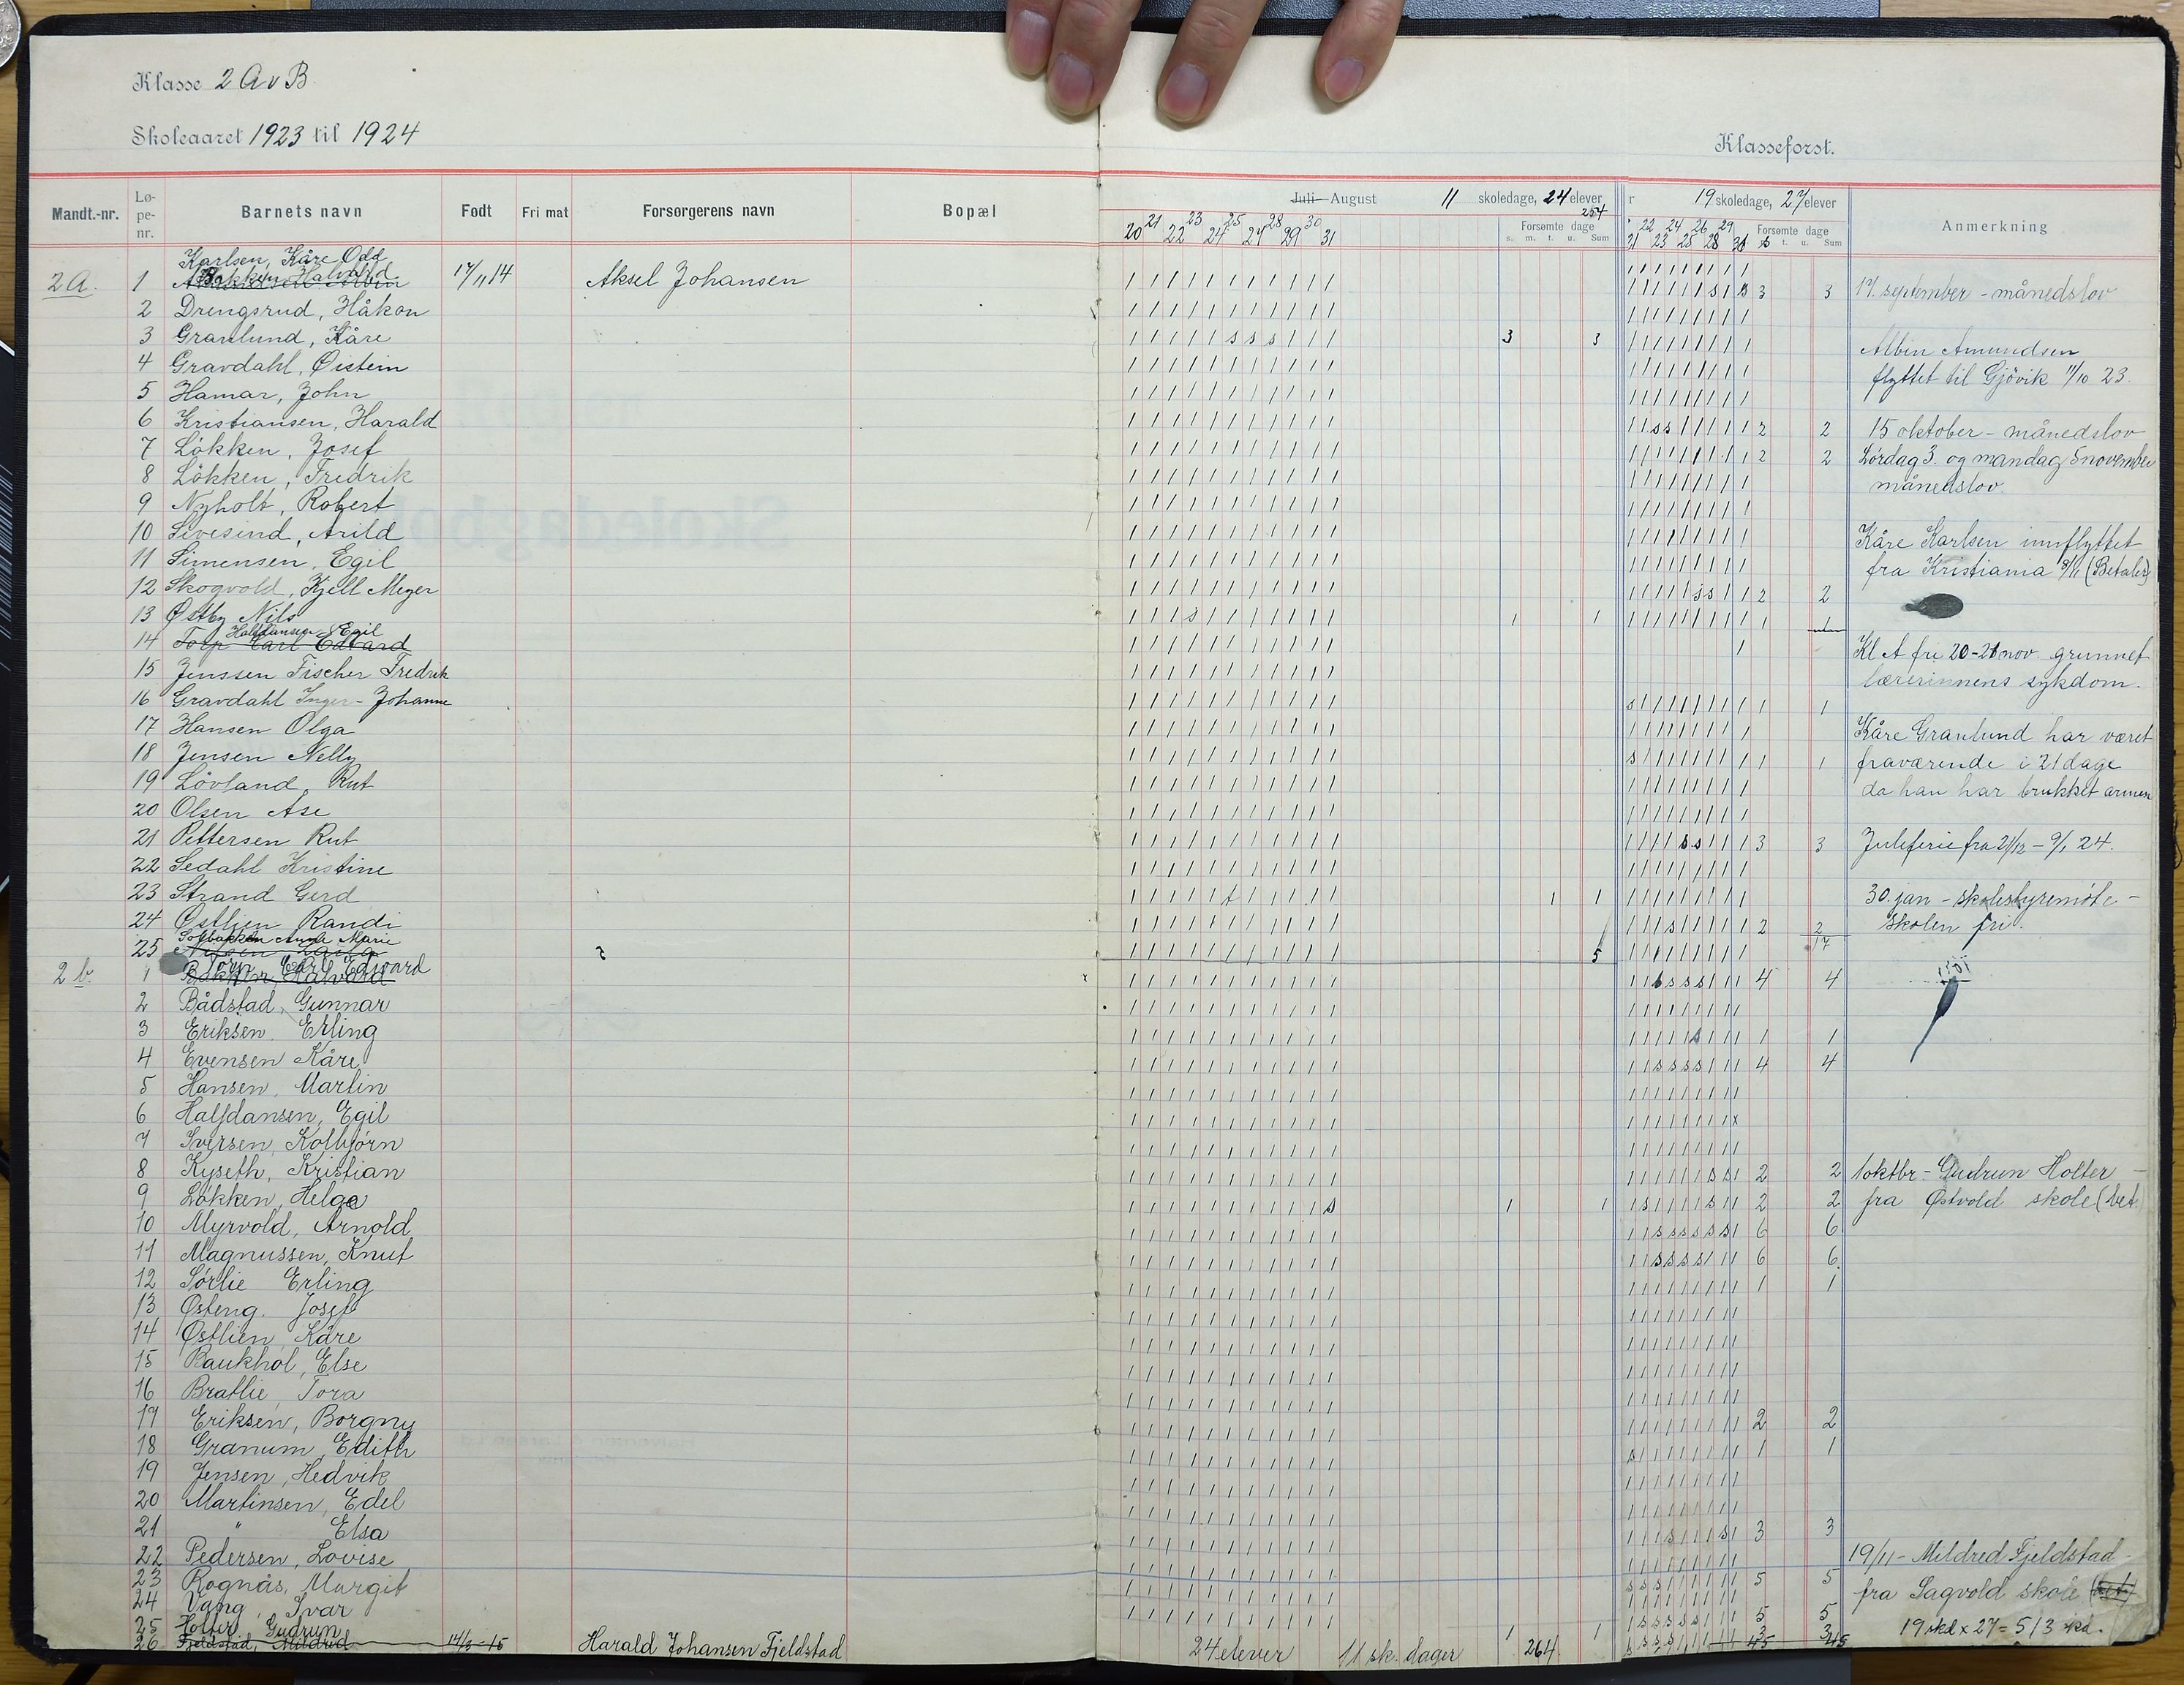 Klasse 2 A v B
Skoleaaret 1923 til 1924
Klasseforst.
Mandt.-nr. Lø-pe-nr. Barnets navn Født Fri mat Forsørgerens navn Bopæl
Juli-August 11 skoledage, 24 elever
254
20 21 22 23 24 25 27 28 29 30 31
Forsømte dage
s. m. t. u. Sum
r 19 skoledage, 27 elever
21 22 23 24 25 26 28 29
Forsømte dage
t. u. Sum
Anmerkning
Karlsen, Kåre Odd
2A. 1 Bakken Halvard 17/11 14 Aksel Johansen
2 Drengsrud, Håkon
3 Granlund, Kåre
4 Gravdahl, Øistein
5 Hamar, John
6 Kristiansen, Harald
7 Løkken, Josef
8 Løkken, Fredrik
9 Nyholt, Robert
10 Sivesind, Arild
11 Simensen, Egil
12 Skogvold, Kjell Meyer
13 Østby Nils
Halfdansen Egil
14 Torp Carl Edvard
15 Jenssen Fischer Fredrik
16 Gravdahl Inger-Johanne
17 Hansen Olga
18 Jensen Nelly
19 Løvland, Rut
20 Olsen Åse
21 Pettersen Rut
22 Sedahl Kristine
23 Strand Gerd
24 Østlien Randi
Solbakken Anna Marie
25
Torp, Carl Edvard
2 b. 1 Bakken, Halvard
2 Bådstad, Gunnar
3 Eriksen, Erling
4 Evensen Kåre
5 Hansen, Martin
6 Halfdansen, Egil
7 Iversen, Kolbjørn
8 Kyseth, Kristian
9 Løkken, Helge
10 Myrvold, Arnold
11 Magnussen, Knut
12 Sørlie Erling
13 Østeng, Josef
14 Østlien, Kåre
15 Baukhol, Else
16 Bratlie, Tora
17 Eriksen, Borgny
18 Granum, Edith
19 Jensen, Hedvik
20 Martinsen, Edel
21 " Elsa
22 Pedersen, Lovise
23 Rognås, Margit
24 Vang, Ivar
25 Holter, Gudrun
26 Fjeldstad, Mildred 14/3-15 Harald Johansen Fjeldstad
24 elever 11 sk. dager 264
17. september - månedslov
Albin Amundsen
flyttet til Gjøvik 11/10 23.
15 oktober - månedslov
Lørdag 3. og mandag 5 november
månedslov.
Kåre Karlsen innflyttet
fra Kristiania 8/11 (Betaler)
Kl A fri 20-21 nov. grunnet
lærerinnens sykdom.
Kåre Granlund har været
fraværende i 21 dage
da han har brukket armen
Juleferie fra 21/12 - 9/1 24.
30. jan - skolestyremøte -
skolen fri.
1 oktbr - Gudrun Holter -
fra Østvold skole (bet.
19/11 - Mildred Fjeldstad -
fra Sagvold skole (bet)
19 skd x 27 = 513 skd.